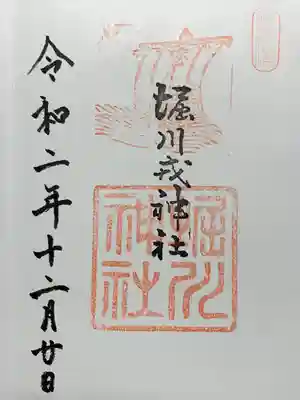 堀川戎神社
令和二年十二月廿日
堀川
神社